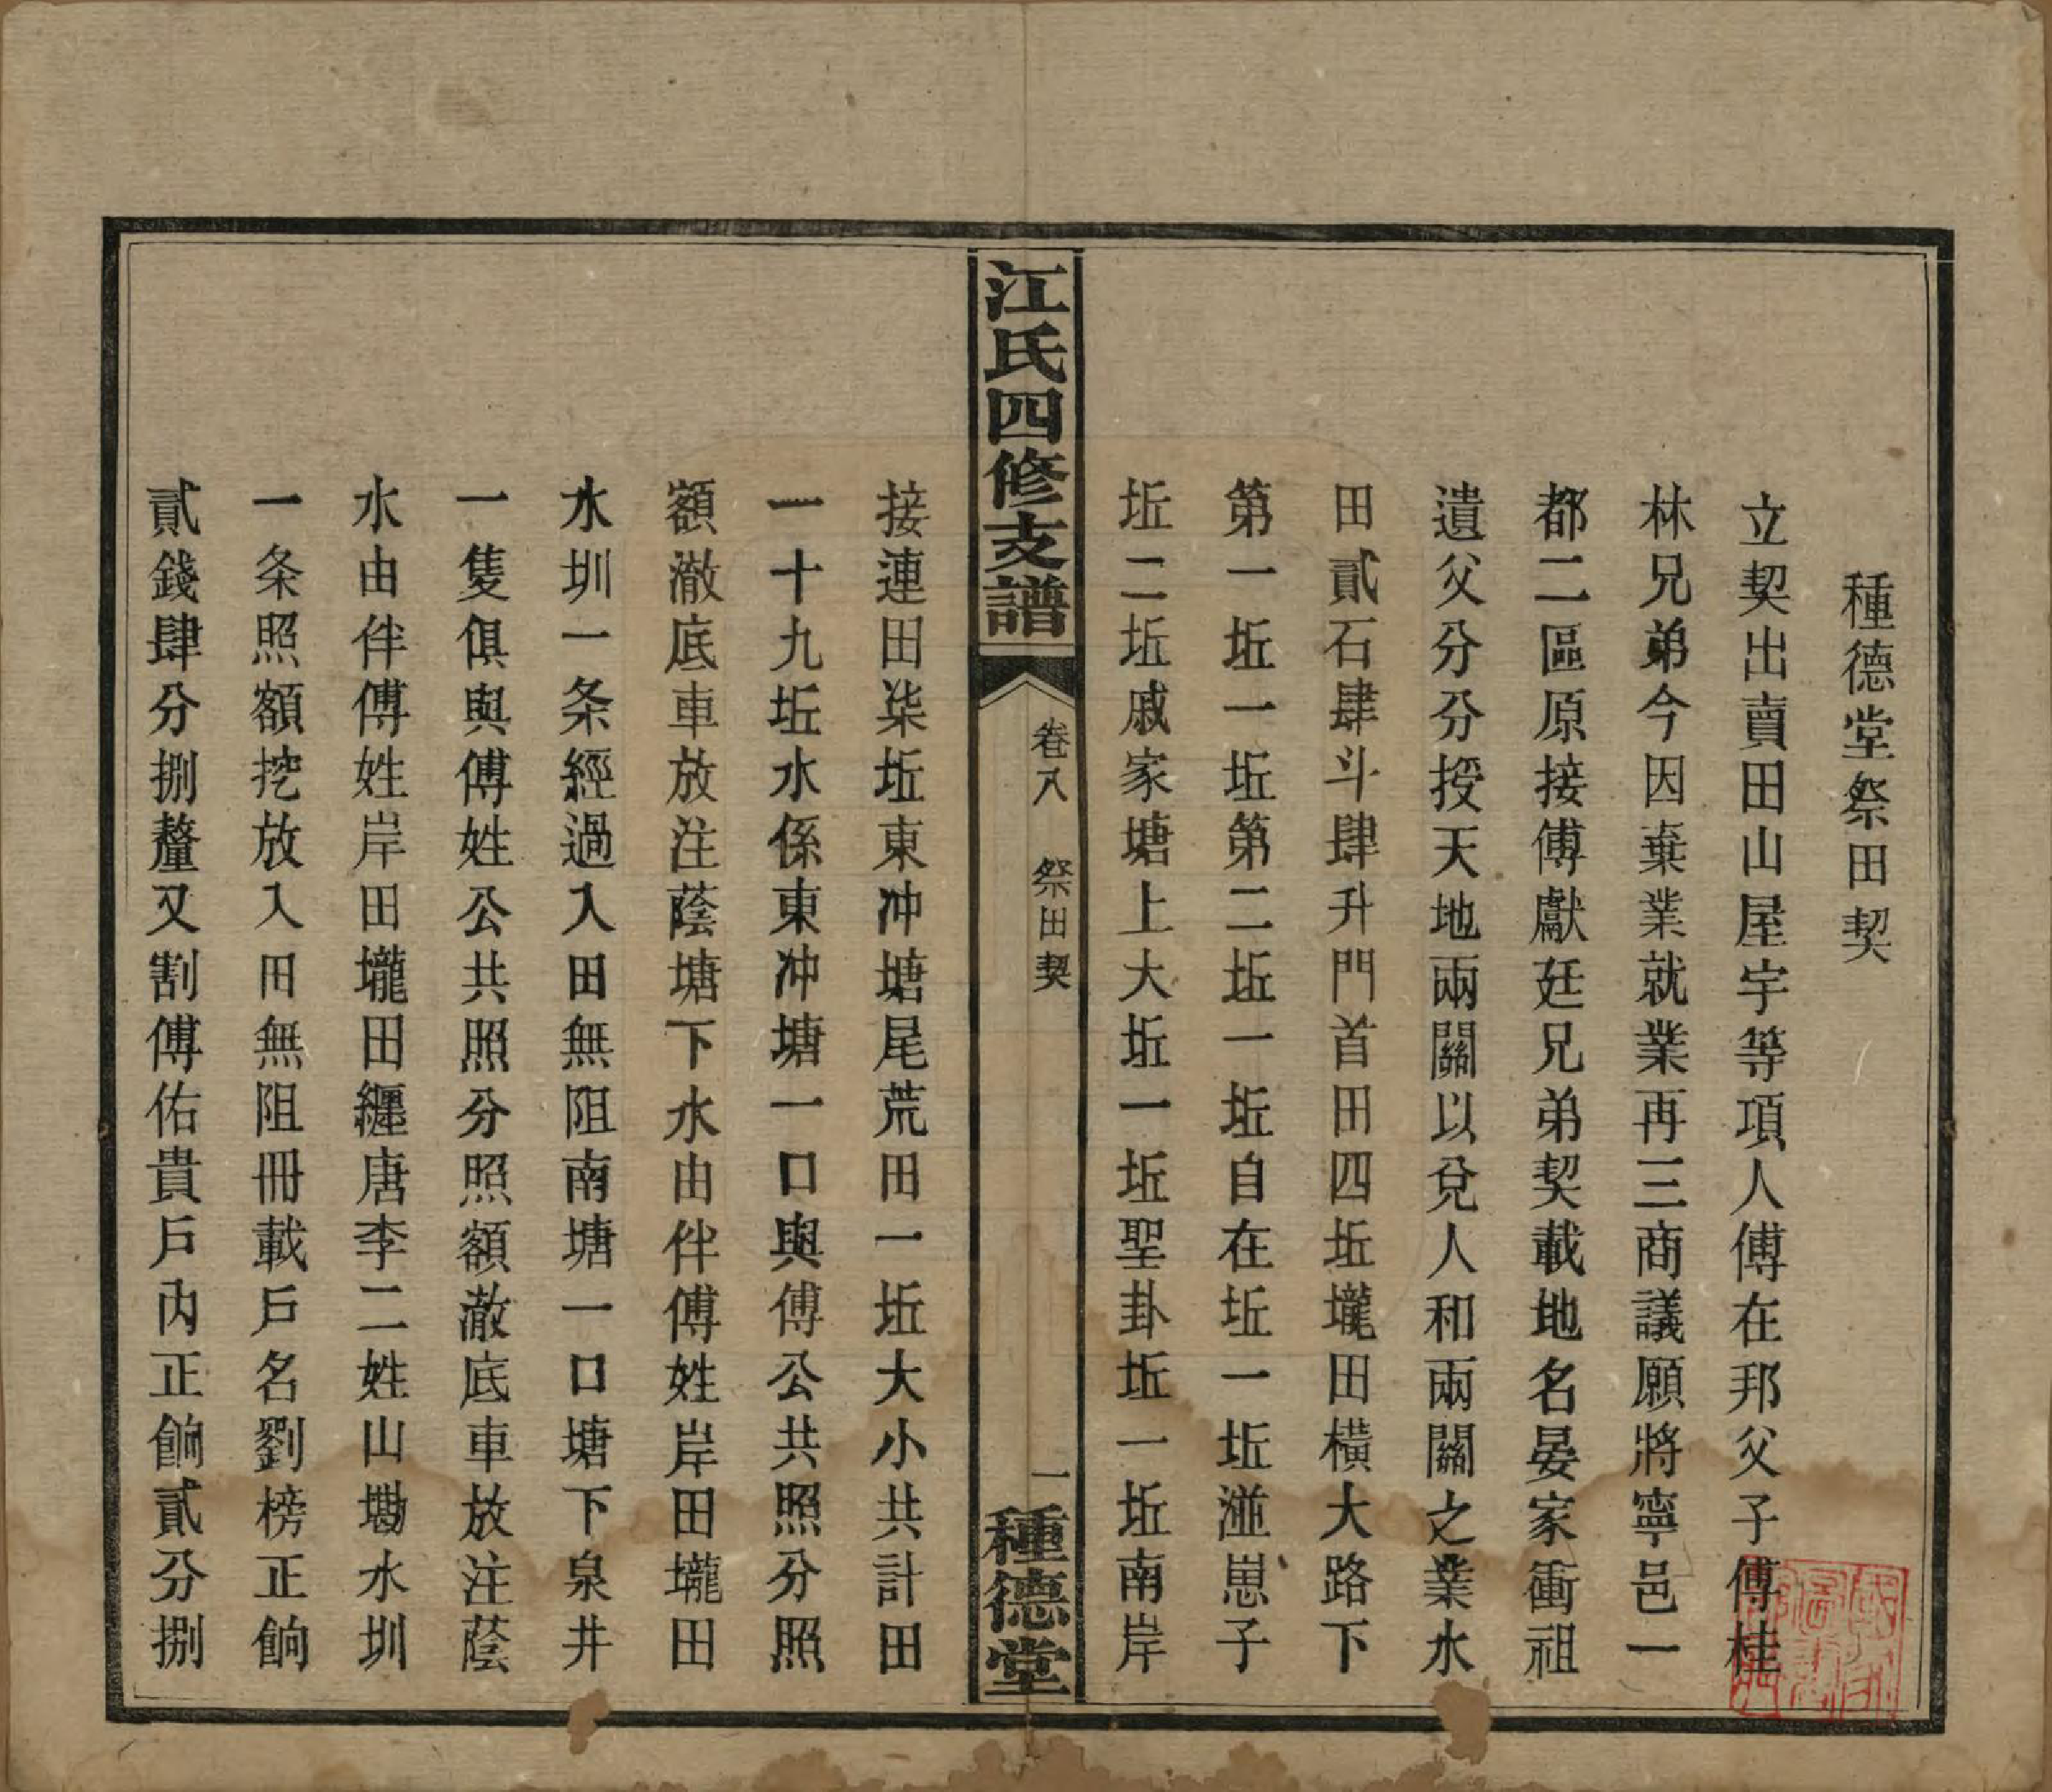 種德堂祭田契
立契出賣田山屋宇等項人傅在邦父子傅桂
林兄弟今因棄業就業再三商議願將寧邑一
都二區原接傅獻廷兄弟契載地名晏家衝祖
遺父分分授天地兩關以兌人和兩關之業水
田貳石肆斗肆升門首田四坵壠田橫大路下
第一坵一坵第二坵一坵自在坵一坵湴崽子
坵二坵戚家塘上大坵一坵聖卦坵一坵南岸
江氏四修支譜
卷八 祭田契
一
種德堂
接連田柒坵東冲塘尾荒田一坵大小共計田
一十九坵水係東冲塘一口與傅公共照分照
額澈底車放注蔭塘下水由伴傅姓岸田壠田
水圳一条經過入田無阻南塘一口塘下泉井
一隻俱與傅姓公共照分照額澈底車放注蔭
水由伴傅姓岸田壠田纏唐李二姓山墈水圳
一条照額挖放入田無阻冊載戶名劉榜正餉
貳錢肆分捌釐又割傅佑貴戶內正餉貳分捌